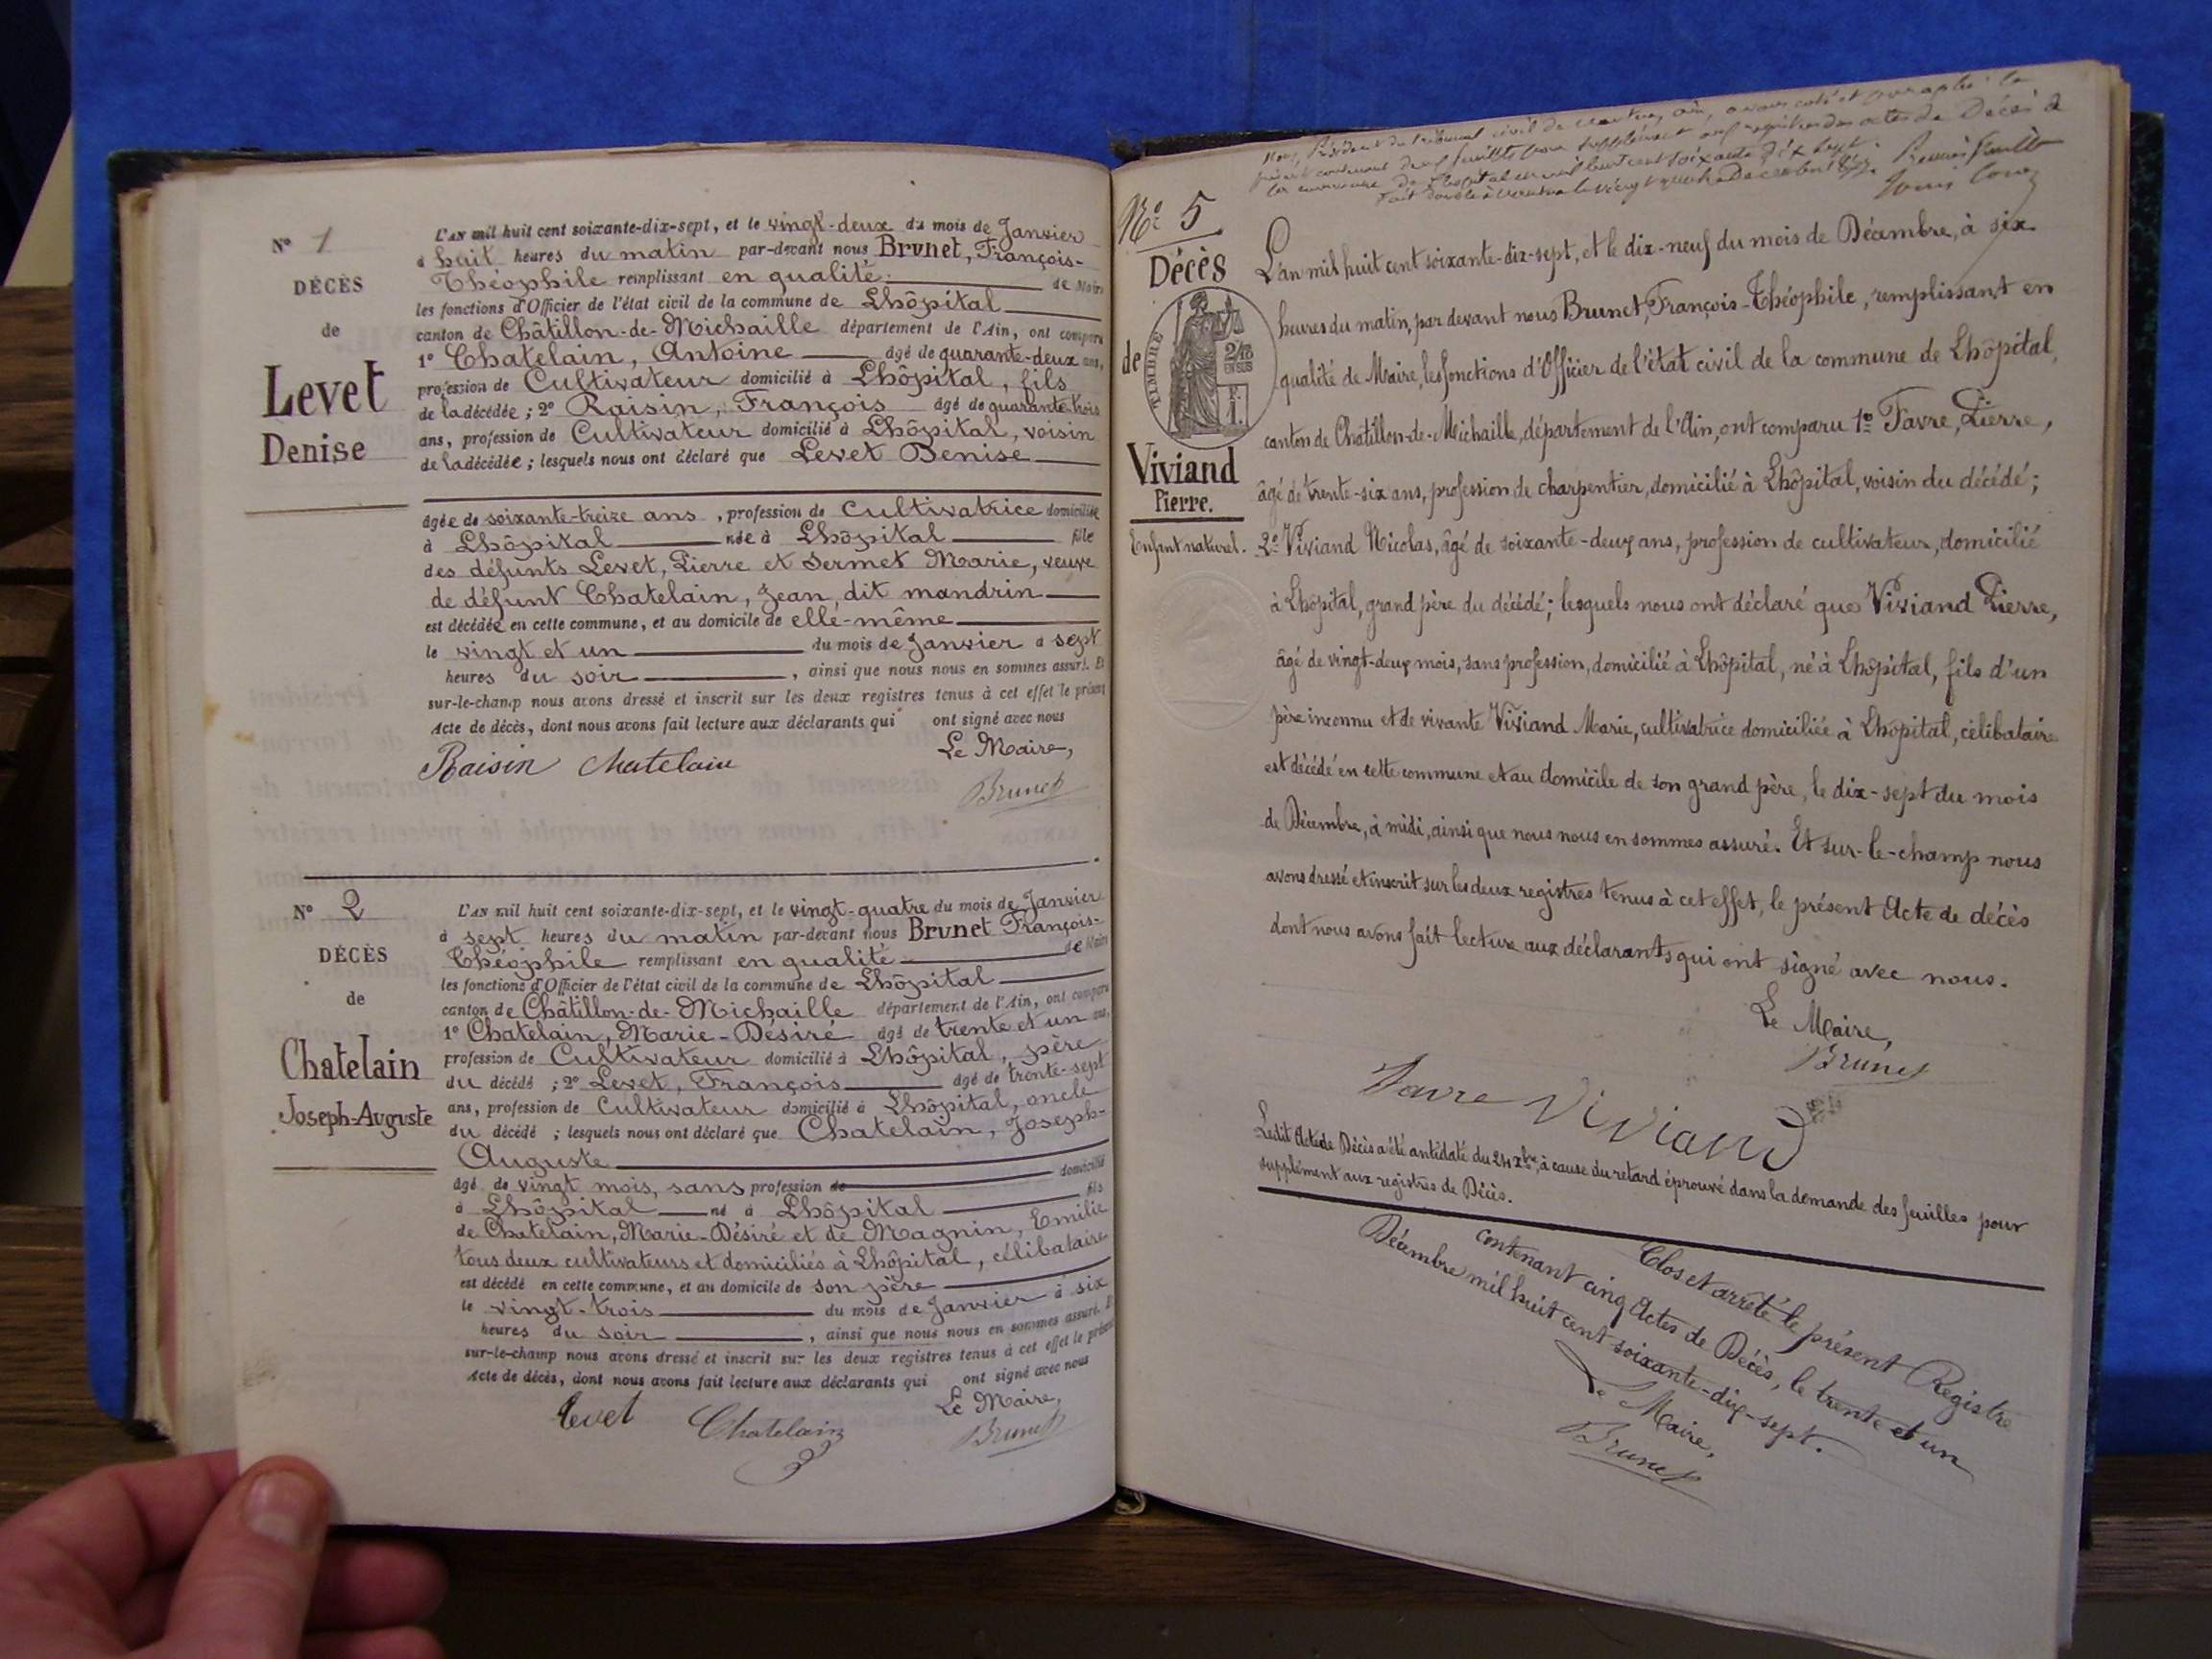 N° 1
DÉCÈS
de
Levet
Denise
L'AN mil huit cent soixante-dix-sept, et le vingt-deux du mois de Janvier
à huit heures du matin par-devant nous Brunet, François-
Théophile remplissant en qualité de Maire
les fonctions d'Officier de l'état civil de la commune de Lhôpital
canton de Châtillon-de-Michaille département de l'Ain, ont comparu
1° Chatelain, Antoine âgé de quarante-deux ans,
profession de Cultivateur domicilié à Lhôpital, fils
de la décédée ; 2° Raisin, François âgé de quarante-trois
ans, profession de Cultivateur domicilié à Lhôpital, voisin
de la décédée ; lesquels nous ont déclaré que Levet Denise
âgée de soixante-treize ans, profession de Cultivatrice domiciliée
à Lhôpital née à Lhôpital fille
des défunts Levet, Pierre et Sermet Marie, veuve
de défunt Chatelain, Jean, dit mandrin
est décédée en cette commune, et au domicile de elle-même
le vingt et un du mois de Janvier à sept
heures du soir, ainsi que nous nous en sommes assuré. Et
sur-le-champ nous avons dressé et inscrit sur les deux registres tenus à cet effet le présent
Acte de décès, dont nous avons fait lecture aux déclarants qui ont signé avec nous
Le Maire,
Raisin Chatelain
Brunet
N° 2
DÉCÈS
de
Chatelain
Joseph-Auguste
L'AN mil huit cent soixante-dix-sept, et le vingt-quatre du mois de Janvier
à sept heures du matin par-devant nous Brunet François-
Théophile remplissant en qualité de Maire
les fonctions d'Officier de l'état civil de la commune de Lhôpital
canton de Châtillon-de-Michaille département de l'Ain, ont comparu
1° Chatelain, Marie-Désiré âgé de trente et un ans,
profession de Cultivateur domicilié à Lhôpital, père
du décédé ; 2° Levet, François âgé de trente-sept
ans, profession de Cultivateur domicilié à Lhôpital, oncle
du décédé ; lesquels nous ont déclaré que Chatelain, Joseph-
Auguste
âgé de vingt mois, sans profession de domicilié
à Lhôpital né à Lhôpital fils
de Chatelain, Marie-Désiré et de Magnin, Emilie
tous deux cultivateurs et domiciliés à Lhôpital, célibataire
est décédé en cette commune, et au domicile de son père
le vingt-trois du mois de Janvier à six
heures du soir, ainsi que nous nous en sommes assuré. Et
sur-le-champ nous avons dressé et inscrit sur les deux registres tenus à cet effet le présent
Acte de décès, dont nous avons fait lecture aux déclarants qui ont signé avec nous
Le Maire,
Levet Chatelain
Brunet
Nous, Président du tribunal civil de Nantua, Ain, avons coté et paraphé le
présent contenant deux feuilles pour supplément aux registres des actes de Décès de
la commune de Lhopital en mil huit cent soixante dix sept.
Fait double à Nantua le vingt quatre Décembre 1877.
N° 5
Décès
de
TIMBRE
2/10
EN SUS
Viviand
Pierre.
Enfant naturel.
L'an mil huit cent soixante-dix-sept, et le dix-neuf du mois de Décembre, à six
heures du matin, par devant nous Brunet, François-Théophile, remplissant en
qualité de Maire, les fonctions d'Officier de l'état civil de la commune de Lhôpital,
canton de Chatillon-de-Michaille, département de l'Ain, ont comparu 1° Favre, Pierre,
âgé de trente-six ans, profession de charpentier, domicilié à Lhôpital, voisin du décédé ;
2° Viviand Nicolas, âgé de soixante-deux ans, profession de cultivateur, domicilié
à Lhôpital, grand père du décédé ; lesquels nous ont déclaré que Viviand Pierre,
âgé de vingt-deux mois, sans profession, domicilié à Lhôpital, né à Lhôpital, fils d'un
père inconnu et de vivante Viviand Marie, cultivatrice domiciliée à Lhôpital, célibataire
est décédé en cette commune et au domicile de son grand père, le dix-sept du mois
de Décembre, à midi, ainsi que nous nous en sommes assuré. Et sur-le-champ nous
avons dressé et inscrit sur les deux registres tenus à cet effet, le présent Acte de décès
dont nous avons fait lecture aux déclarants qui ont signé avec nous.
Le Maire,
Brunet
Favre Viviand
Ledit Acte de Décès a été antidaté du 24 Xbre, à cause du retard éprouvé dans la demande des feuilles pour
supplément aux registres de Décès.
Clos et arrêté le présent Registre
contenant cinq Actes de Décès, le trente et un
Décembre mil huit cent soixante-dix-sept.
Le Maire,
Brunet